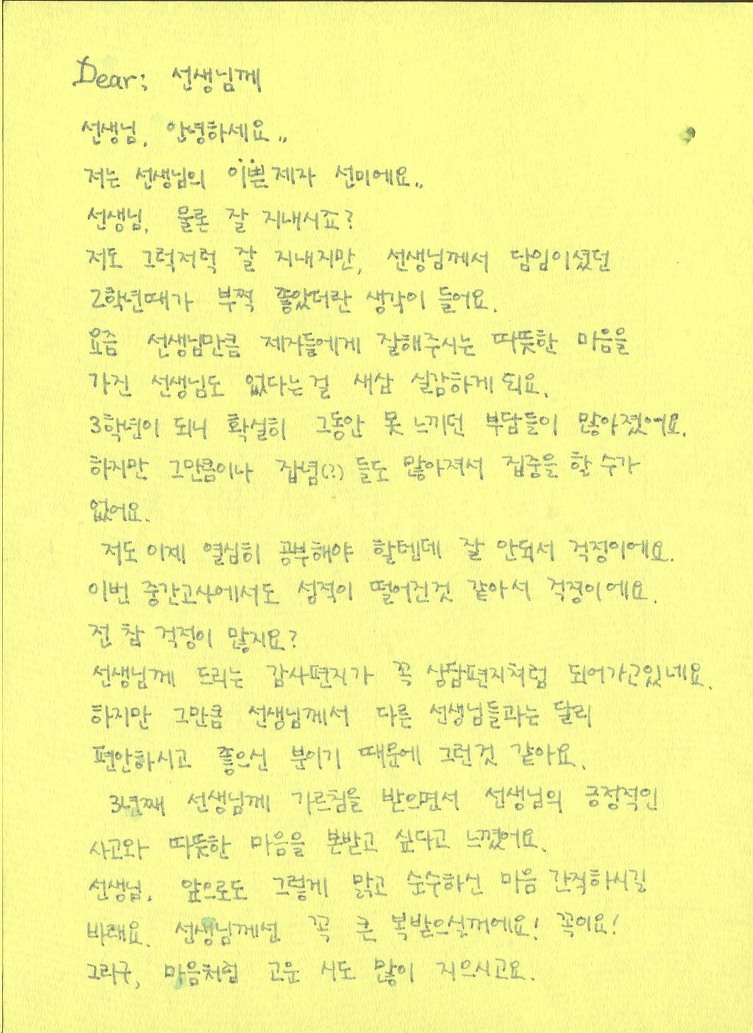 Dear: 선생님께
선생님, 안녕하세요..
저는 선생님의 이쁜 제자 선미에요..
선생님, 물론 잘 지내시죠?
저도 그럭저럭 잘 지내지만, 선생님께서 담임이셨던
2학년때가 부쩍 좋았더란 생각이 들어요.
요즘 선생님만큼 제자들에게 잘해주시는 따뜻한 마음을
가진 선생님도 없다는걸 새삼 실감하게 되요.
3학년이 되니 확실히 그동안 못 느끼던 부담들이 많아졌어요.
하지만 그만큼이나 잡념(?)들도 많아져서 집중을 할 수가
없어요.
저도 이제 열심히 공부해야 할텐데 잘 안되서 걱정이에요.
이번 중간고사에서도 성적이 떨어진것 같아서 걱정이에요.
전 참 걱정이 많지요?
선생님께 드리는 감사편지가 꼭 상담편지처럼 되어가고있네요.
하지만 그만큼 선생님께서 다른 선생님들과는 달리
편안하시고 좋으신 분이기 때문에 그런것 같아요.
3년째 선생님께 가르침을 받으면서 선생님의 긍정적인
사고와 따뜻한 마음을 본받고 싶다고 느꼈어요.
선생님, 앞으로도 그렇게 맑고 순수하신 마음 간직하시길
바래요. 선생님께선 꼭 큰 복받으실꺼에요! 꼭이요!
그리구, 마음처럼 고운 시도 많이 지으시고요.